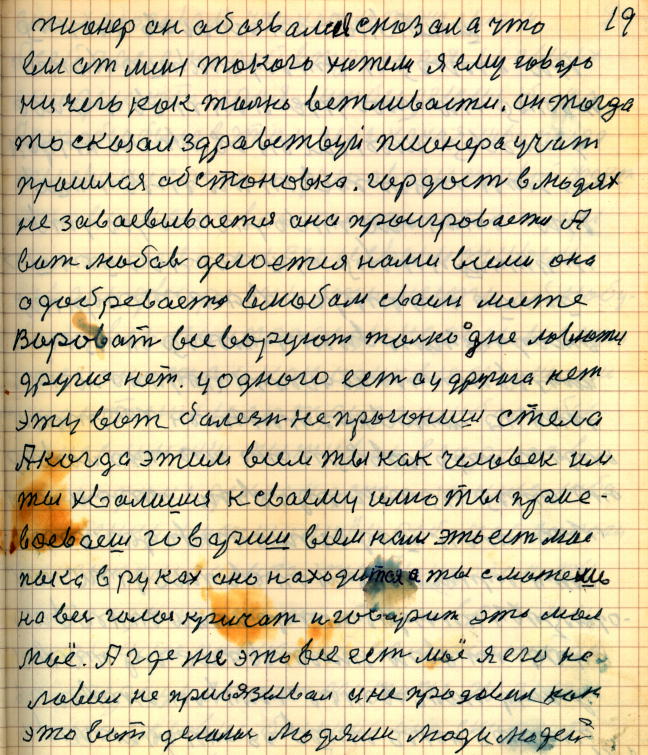 пионер он обозвался сказал а что 19
ему от меня токого хотели я ему говорю
ничего как толко ветливасти. он тогда
то сказал здравствуй пионера учат
прошлая обстоновка. гордост в людях
не заваевывается она проигровается А
вот любов делоется нами всеми она
одобревается в любом сваем месте
Вороват все воруют толко одне ловются
другие нет. у одного ест а у другога нет
эту вот балезн не прогониш с тела
А когда этим всем ты как человек им
ты хвалишся к сваему имю ты присе-
воеваеш говариш всем нам это ест мое
пока в руках оно находится а ты сможешь
на вес голос кричат и говарит это моя
моё. А где же это все ест моё я его не
ловил не привязывал и не продовал как
это вот делался людями люди людей